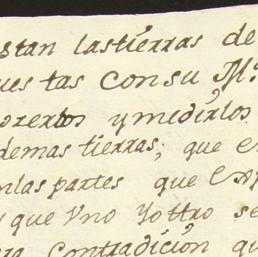 stan lastierras de
ues tas consu M.
orerlos ymidirlos
demas tierras, que e
nlas partes que
y que Vno Yottro se
Contradicion qu